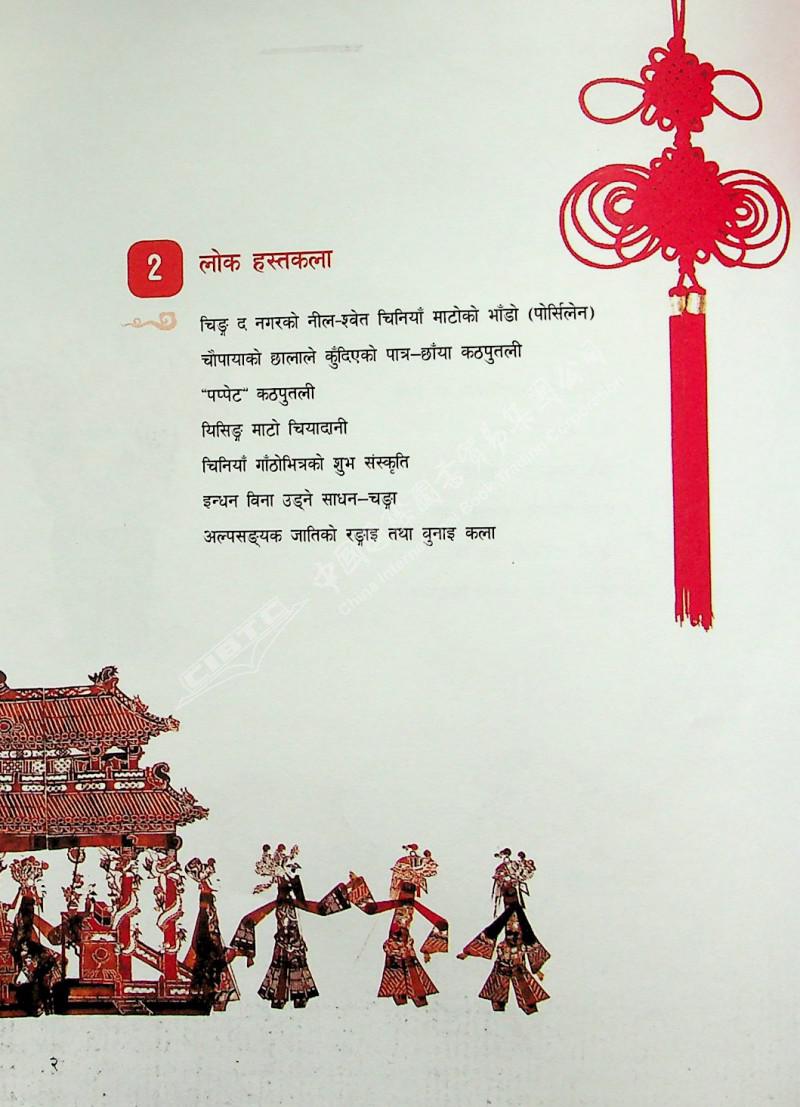 2
लोक हस्तकला
चिङ्ग द नगरको नील-श्वेत चिनियाँ माटोको भाँडो (पोर्सिलेन)
चौपायाको छालाले कुँदिएको पात्र–छाँया कठपुतली
“पप्पेट” कठपुतली
यिसिङ्ग माटो चियादानी
चिनियाँ गाँठोभित्रको शुभ संस्कृति
इन्धन विना उड्ने साधन–चङ्गा
अल्पसङ्यक जातिको रङ्गाइ तथा वुनाइ कला
CIBTC
China International Book Trading Corporation
२